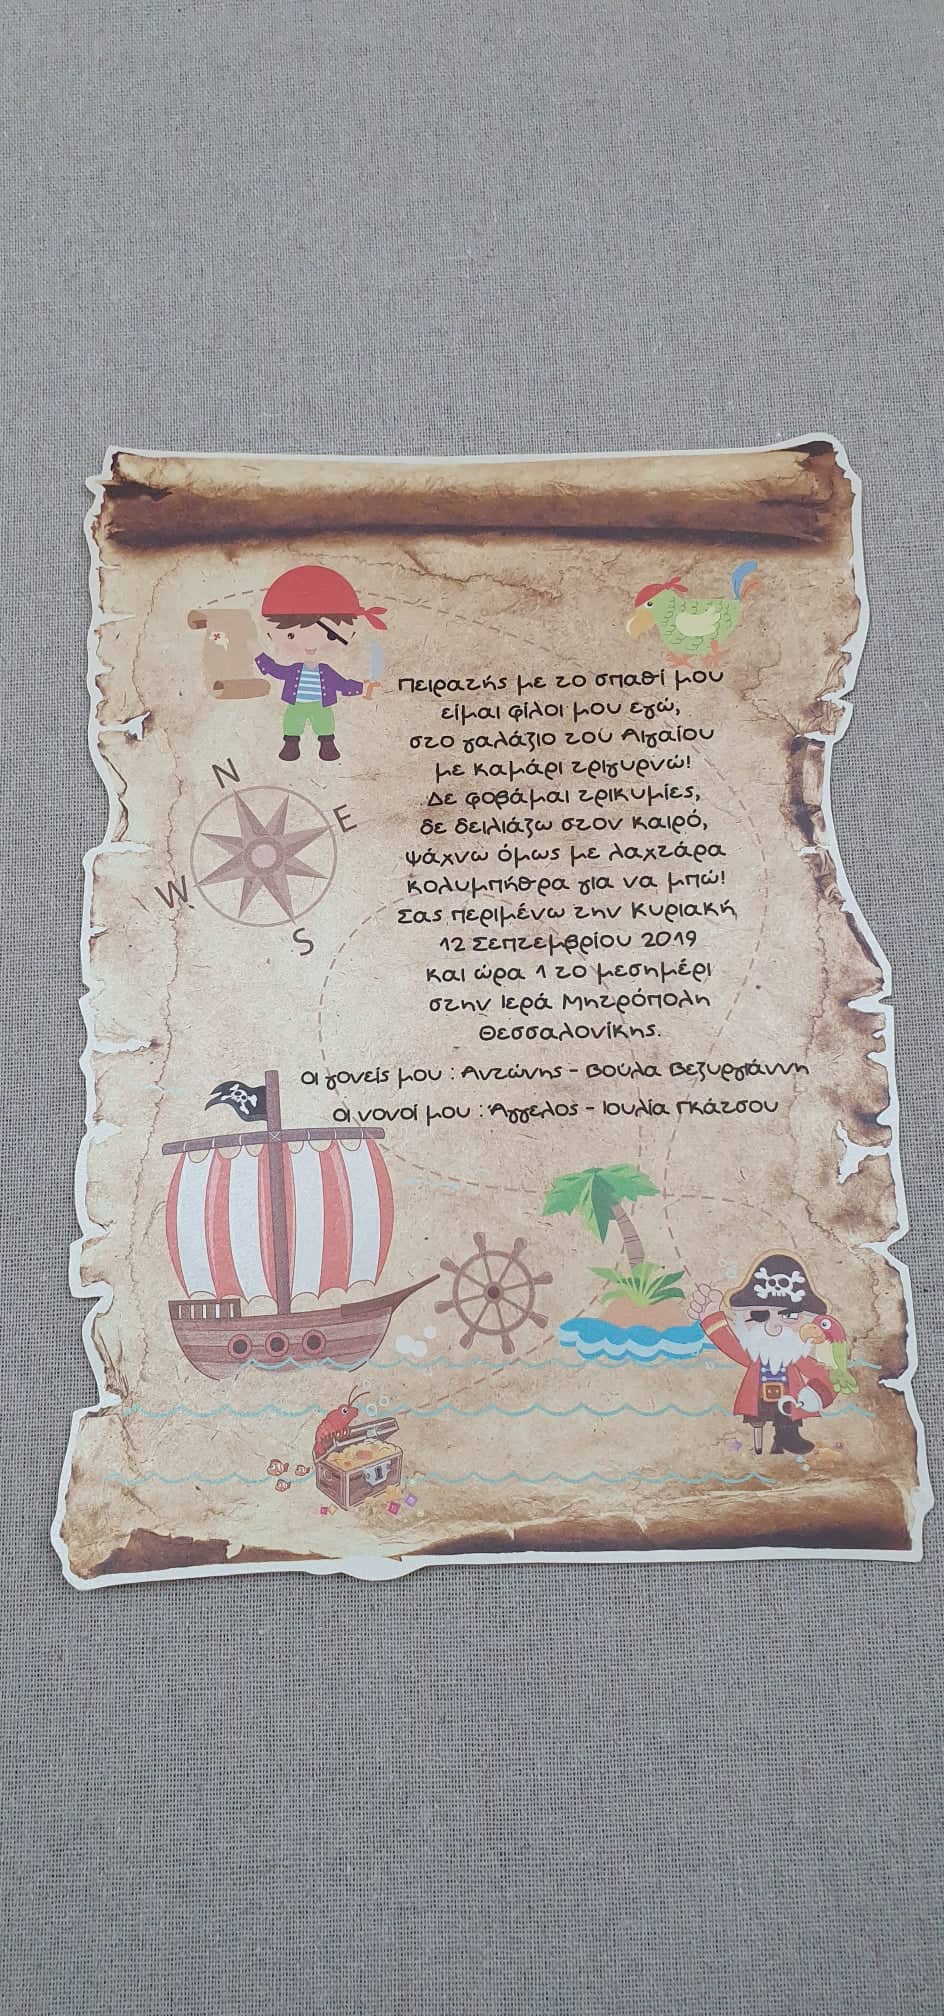 Πειρατής με το σπαθί μου
είμαι φίλοι μου εγώ,
στο γαλάζιο του Αιγαίου
με καμάρι τριγυρνώ!
Δε φοβάμαι τρικυμίες,
δε δειλιάζω στον καιρό,
ψάχνω όμως με λαχτάρα
κολυμπήθρα για να μπώ!
Σας περιμένω την Κυριακή
12 Σεπτεμβρίου 2019
και ώρα 1 το μεσημέρι
στην Ιερά Μητρόπολη
Θεσσαλονίκης.
οι γονείς μου : Αντώνης - Βούλα Βεζυργιάννη
οι νονοί μου : Άγγελος - Ιουλία Γκάτσου
N
E
W
S